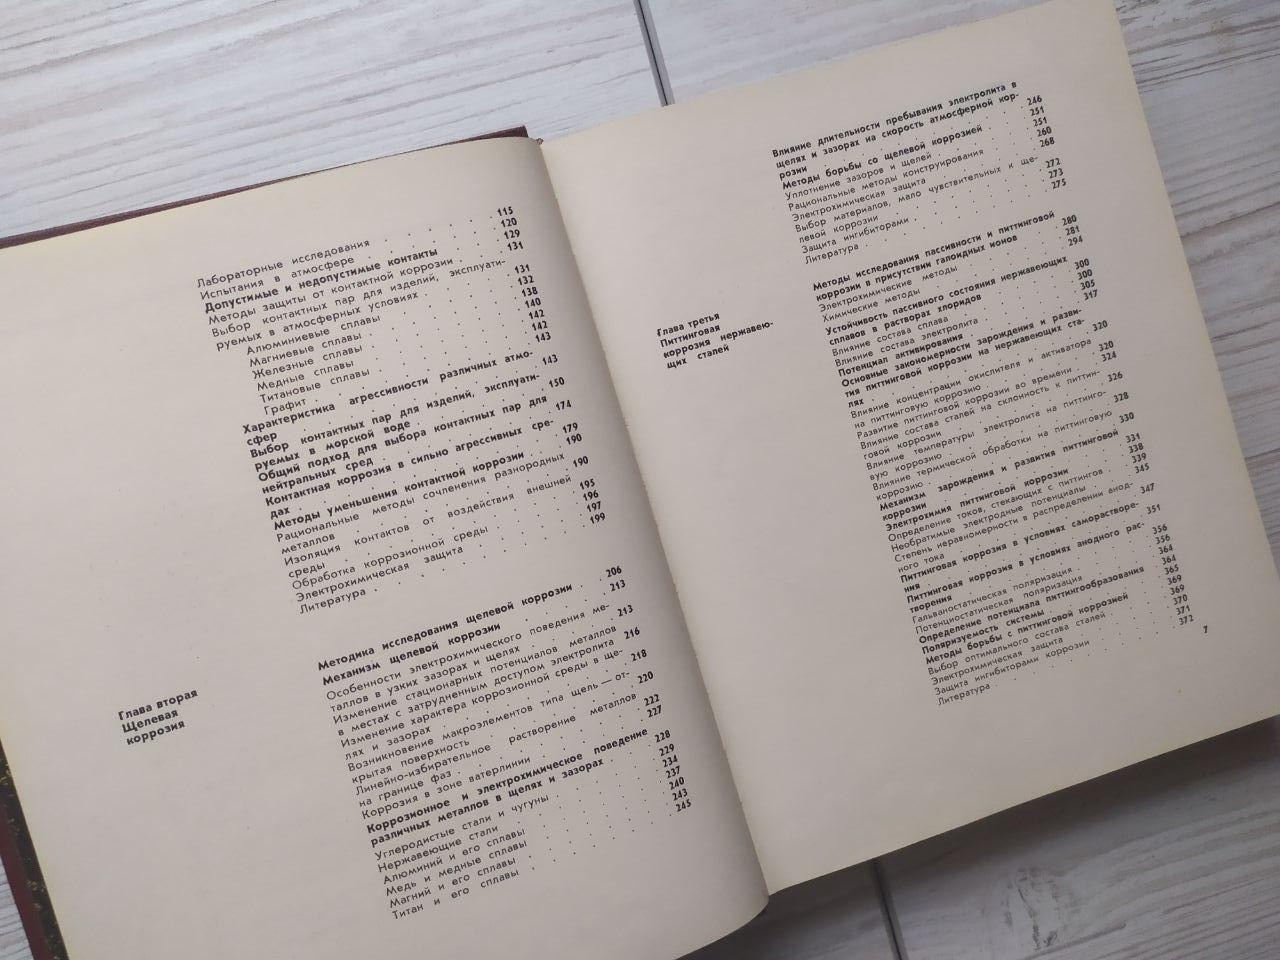 Лабораторные исследования . . . . . . 115
Испытания в атмосфере . . . . . . 120
Допустимые и недопустимые контакты . . . 129
Методы защиты от контактной коррозии . . . 131
Выбор контактных пар для изделий, эксплуати-
руемых в атмосферных условиях . . . . 131
Алюминиевые сплавы . . . . . . 132
Магниевые сплавы . . . . . . 138
Железные сплавы . . . . . . 140
Медные сплавы . . . . . . 142
Титановые сплавы . . . . . . 142
Графит . . . . . . 143
Характеристика агрессивности различных атмо-
сфер . . . . . . 143
Выбор контактных пар для изделий, эксплуати-
руемых в морской воде . . . . . . 150
Общий подход для выбора контактных пар для
нейтральных сред . . . . . . 174
Контактная коррозия в сильно агрессивных сре-
дах . . . . . . 179
Методы уменьшения контактной коррозии . . . 190
Рациональные методы сочленения разнородных
металлов . . . . . . 190
Изоляция контактов от воздействия внешней
среды . . . . . . 195
Обработка коррозионной среды . . . . . 196
Электрохимическая защита . . . . . . 197
Литература . . . . . . 199
Глава вторая
Щелевая
коррозия
Методика исследования щелевой коррозии . . 206
Механизм щелевой коррозии . . . . . 213
Особенности электрохимического поведения ме-
таллов в узких зазорах и щелях . . . . 213
Изменение стационарных потенциалов металлов
в местах с затрудненным доступом электролита 216
Изменение характера коррозионной среды в ще-
лях и зазорах . . . . . . 218
Возникновение макроэлементов типа щель — от-
крытая поверхность . . . . . . 220
Линейно-избирательное растворение металлов
на границе фаз . . . . . . 222
Коррозия в зоне ватерлинии . . . . . 227
Коррозионное и электрохимическое поведение
различных металлов в щелях и зазорах . . . 228
Углеродистые стали и чугуны . . . . . 229
Нержавеющие стали . . . . . . 234
Алюминий и его сплавы . . . . . . 237
Медь и медные сплавы . . . . . . 240
Магний и его сплавы . . . . . . 243
Титан и его сплавы . . . . . . 245
Влияние длительности пребывания электролита в
щелях и зазорах на скорость атмосферной кор-
розии . . . . . . 246
Методы борьбы со щелевой коррозией . . . . 251
Уплотнение зазоров и щелей . . . . . 251
Рациональные методы конструирования . . . . 260
Электрохимическая защита . . . . . . 268
Выбор материалов, мало чувствительных к ще-
левой коррозии . . . . . . 272
Защита ингибиторами . . . . . . 273
Литература . . . . . . 275
Глава третья
Питтинговая
коррозия нержавею-
щих сталей
Методы исследования пассивности и питтинговой
коррозии в присутствии галоидных ионов . . 280
Электрохимические методы . . . . . . 281
Химические методы . . . . . . 294
Устойчивость пассивного состояния нержавеющих
сплавов в растворах хлоридов . . . . . 300
Влияние состава сплава . . . . . . 300
Влияние состава электролита . . . . . 305
Потенциал активирования . . . . . . 317
Основные закономерности зарождения и разви-
тия питтинговой коррозии на нержавеющих ста-
лях . . . . . . 320
Влияние концентрации окислителя и активатора
на питтинговую коррозию . . . . . . 320
Развитие питтинговой коррозии во времени . . 324
Влияние состава сталей на склонность к питтин-
говой коррозии . . . . . . 326
Влияние температуры электролита на питтинго-
вую коррозию . . . . . . 328
Влияние термической обработки на питтинговую
коррозию . . . . . . 330
Механизм зарождения и развития питтинговой
коррозии . . . . . . 331
Электрохимия питтинговой коррозии . . . . 338
Определение токов, стекающих с питтингов . . 339
Необратимые электродные потенциалы . . . . 345
Степень неравномерности в распределении анод-
ного тока . . . . . . 347
Питтинговая коррозия в условиях саморастворе-
ния . . . . . . 351
Питтинговая коррозия в условиях анодного рас-
творения . . . . . . 356
Гальваностатическая поляризация . . . . . 356
Потенциостатическая поляризация . . . . . 364
Определение потенциала питтингообразования 364
Поляризуемость системы . . . . . . 365
Методы борьбы с питтинговой коррозией . . . 369
Выбор оптимального состава сталей . . . . 369
Электрохимическая защита . . . . . . 370
Защита ингибиторами коррозии . . . . . 371
Литература . . . . . . 372
7